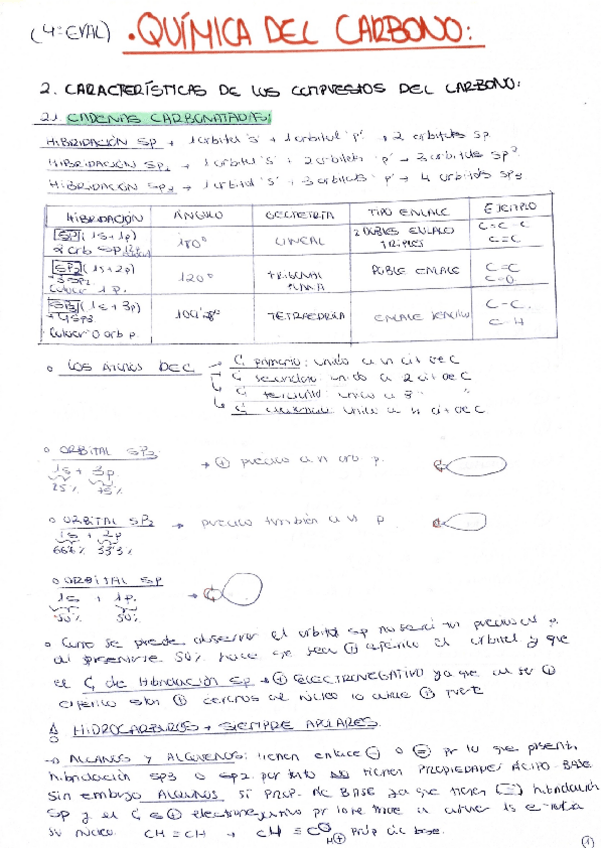 (4ª EVAL) • QUÍMICA DEL CARBONO:
2. CARACTERÍSTICAS DE LOS COMPUESTOS DEL CARBONO:
2.1 CADENAS CARBONATADAS:
HIBRIDACIÓN SP → 1 orbital 's' + 1 orbital 'p' → 2 orbitales sp
HIBRIDACIÓN SP2 → 1 orbital 's' + 2 orbitales 'p' → 3 orbitales sp²
HIBRIDACIÓN SP3 → 1 orbital 's' + 3 orbitales 'p' → 4 orbitales sp3
HIBRIDACIÓN ÁNGULO GEOMETRÍA TIPO ENLACE EJEMPLO
SP (1s + 1p) 2 orb sp 180° LINEAL 2 DOBLES ENLACE TRIPLES C=C=C C≡C
SP2 (1s + 2p) → 3 SP2 1 p. 120° TRIGONAL PLANA DOBLE ENLACE C=C C=O
SP3 (1s + 3p) → 4 SP3 0 orb p. TETRAÉDRICA ENLACE SENCILLO C-C C-H
LOS ÁTOMOS DE C → C primario: unido a un át de C
C secundario: unido a 2 át de C
C terciario: unido a 3 " "
C cuaternario: unido a 4 át de C
ORBITAL SP3
1s + 3p
25% 75%
→ ⊕ parecido a un orb p.
ORBITAL SP2 → parecido también a un p
1s + 2p
66'7% 33'3%
ORBITAL SP
1s + 1p.
50% 50%
Como se puede observar el orbital sp no será tan parecido al p
al presentar 50% hace que sea ⊕ esférico el orbital y que
el C de Hibridación SP → ⊕ ELECTRONEGATIVO ya que al ser ⊕
esférico ⊕ cercano al núcleo lo atrae ⊕ fuerte
HIDROCARBUROS → SIEMPRE APOLARES.
→ ALCANOS Y ALQUENOS: tienen enlace (-) o (=) por lo que presentan
hibridación sp3 o sp2 por tanto NO tienen PROPIEDADES ÁCIDO-BASE
Sin embargo ALQUINOS SÍ PROP. DE BASE ya que tienen (≡) hibridación
sp y el C es ⊕ electronegativo por lo que hace atraer
su núcleo. CH≡CH → CH≡C⊖ H⊕ prop de base.
1